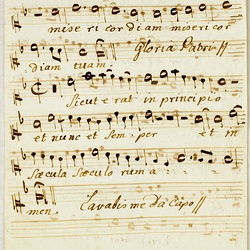 mise ri cor diam miseri cor
diam tuam. Gloria Patri //
Sicut e rat in principio
et nunc et Sem per et in
sæcula sæculo rum a
men. Lavabis me Da Capo //